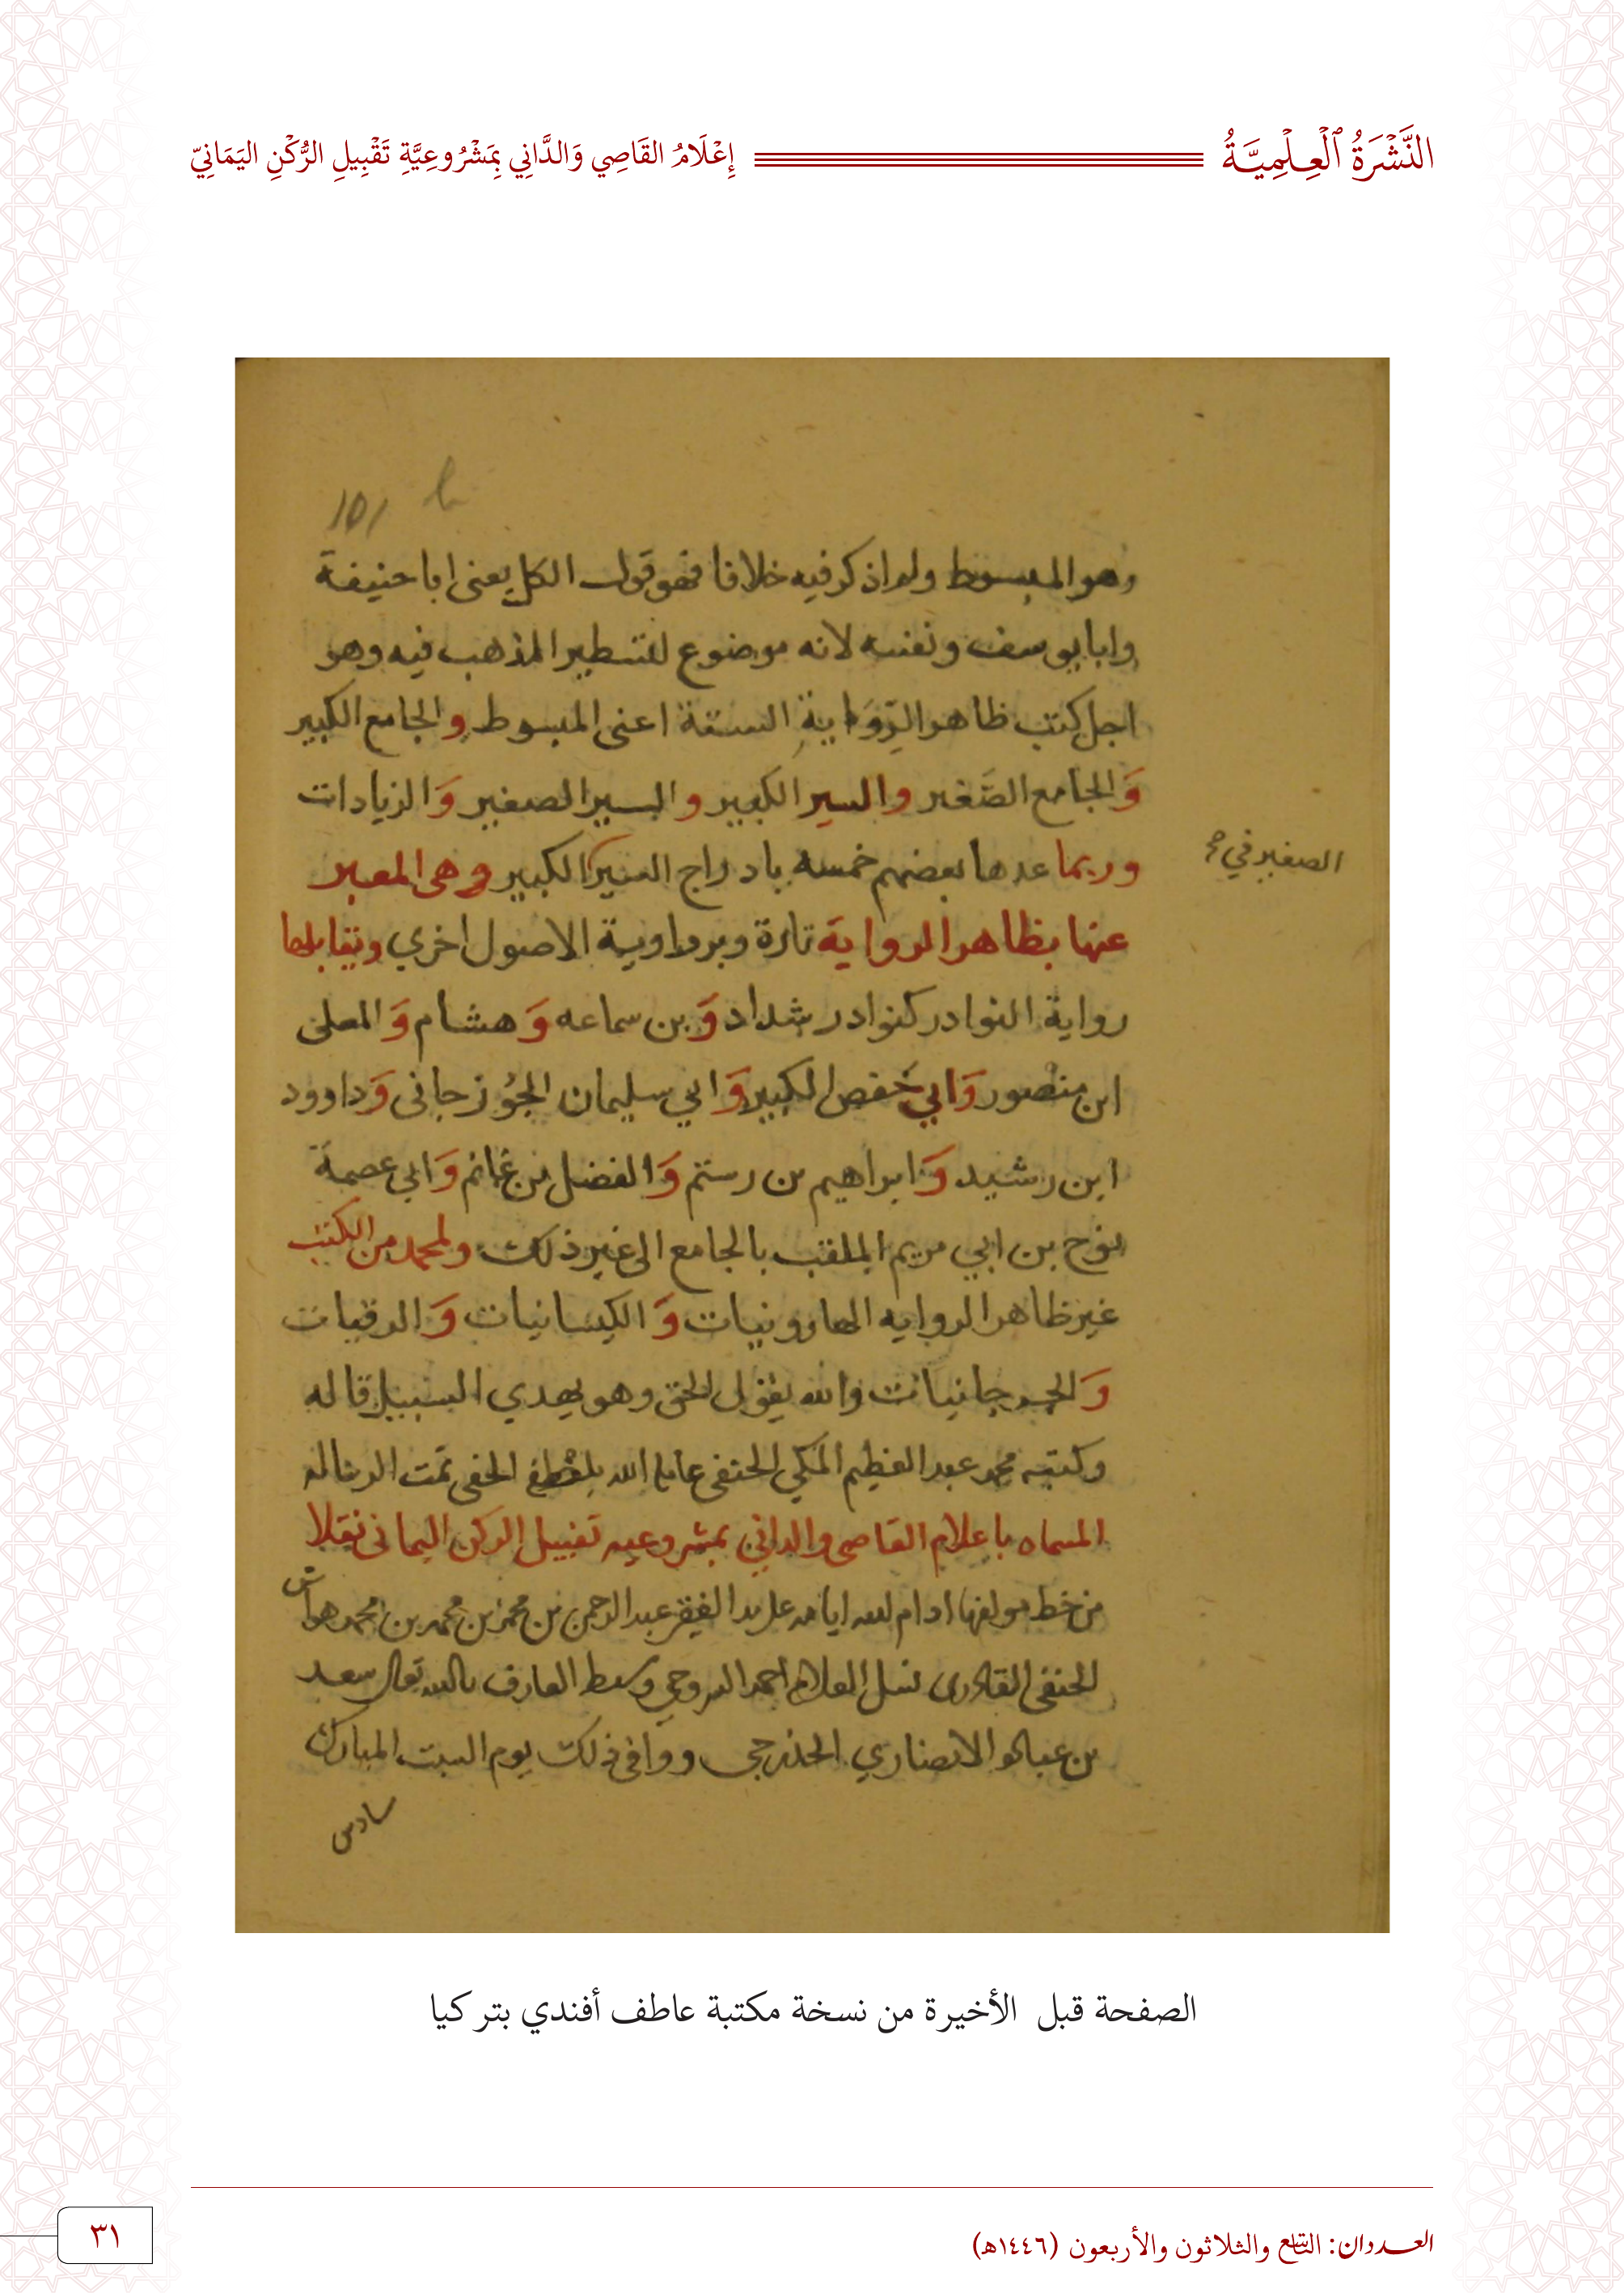 النَّشْرَةُ ٱلْعِلْمِيَّةُ
إِعْلَامُ القَاصِي وَالدَّانِي بِمَشْرُوعِيَّةِ تَقْبِيلِ الرُّكْنِ اليَمَانِيّ
وهو المبسوط ولم اذكر فيه خلافا فهو قول الكل يعنى ابا حنيفة
وابا يوسف ونفسه لانه موضوع لتسطير المذهب فيه وهو
اجل كتب ظاهر الرِّوَاية الستة اعنى المبسوط والجامع الكبير
وَالجامع الصَّغير والسير الكبير والسير الصغير وَالزيادات
وربما عدها بعضهم خمسه بادراج السير الكبير وهى المعبر
الصغير في
عنها بظاهر الرواية تارة وبرواوية الاصول اخري وتقابلها
رواية النوادر كنوادر شداد وَبن سماعه وَهشام وَالمعلى
ابن منصور وَابي حَفص الكبير وَابي سليمان الجُوزجانى وَداوود
ابن رشيد وَابراهيم بن رستم وَالفضل بن غانم وَابي عصمة
نوح بن ابي مريم الملقب بالجامع الى غير ذلك ولمحمد من الكتب
غير ظاهر الروايه الهارونيات وَالكيسانيات وَالرقيات
وَالجرجانيات والله يقول الحق وهو يهدي السبيل قاله
وكتبه محمد عبد العظيم المكي الحنفى عامله الله بلطفه الخفى تمت الرساله
المسماه باعلام القاصى والدانى بمشروعيه تقبيل الركن اليمانى نقلا
من خط مولفها ادام الله ايامه على يد الفقير عبد الرحمن بن محمد بن محمد بن محمد هواش
الحنفى القادرى نسل العلامه احمد السروجي وسبط العارف بالله تعالى سعد
بن عباده الانصاري الخزرجى ووافى ذلك يوم السبت المبارك
سادس
الصفحة قبل الأخيرة من نسخة مكتبة عاطف أفندي بتركيا
العددان: التاسع والثلاثون والأربعون (١٤٤٦هـ)
٣١